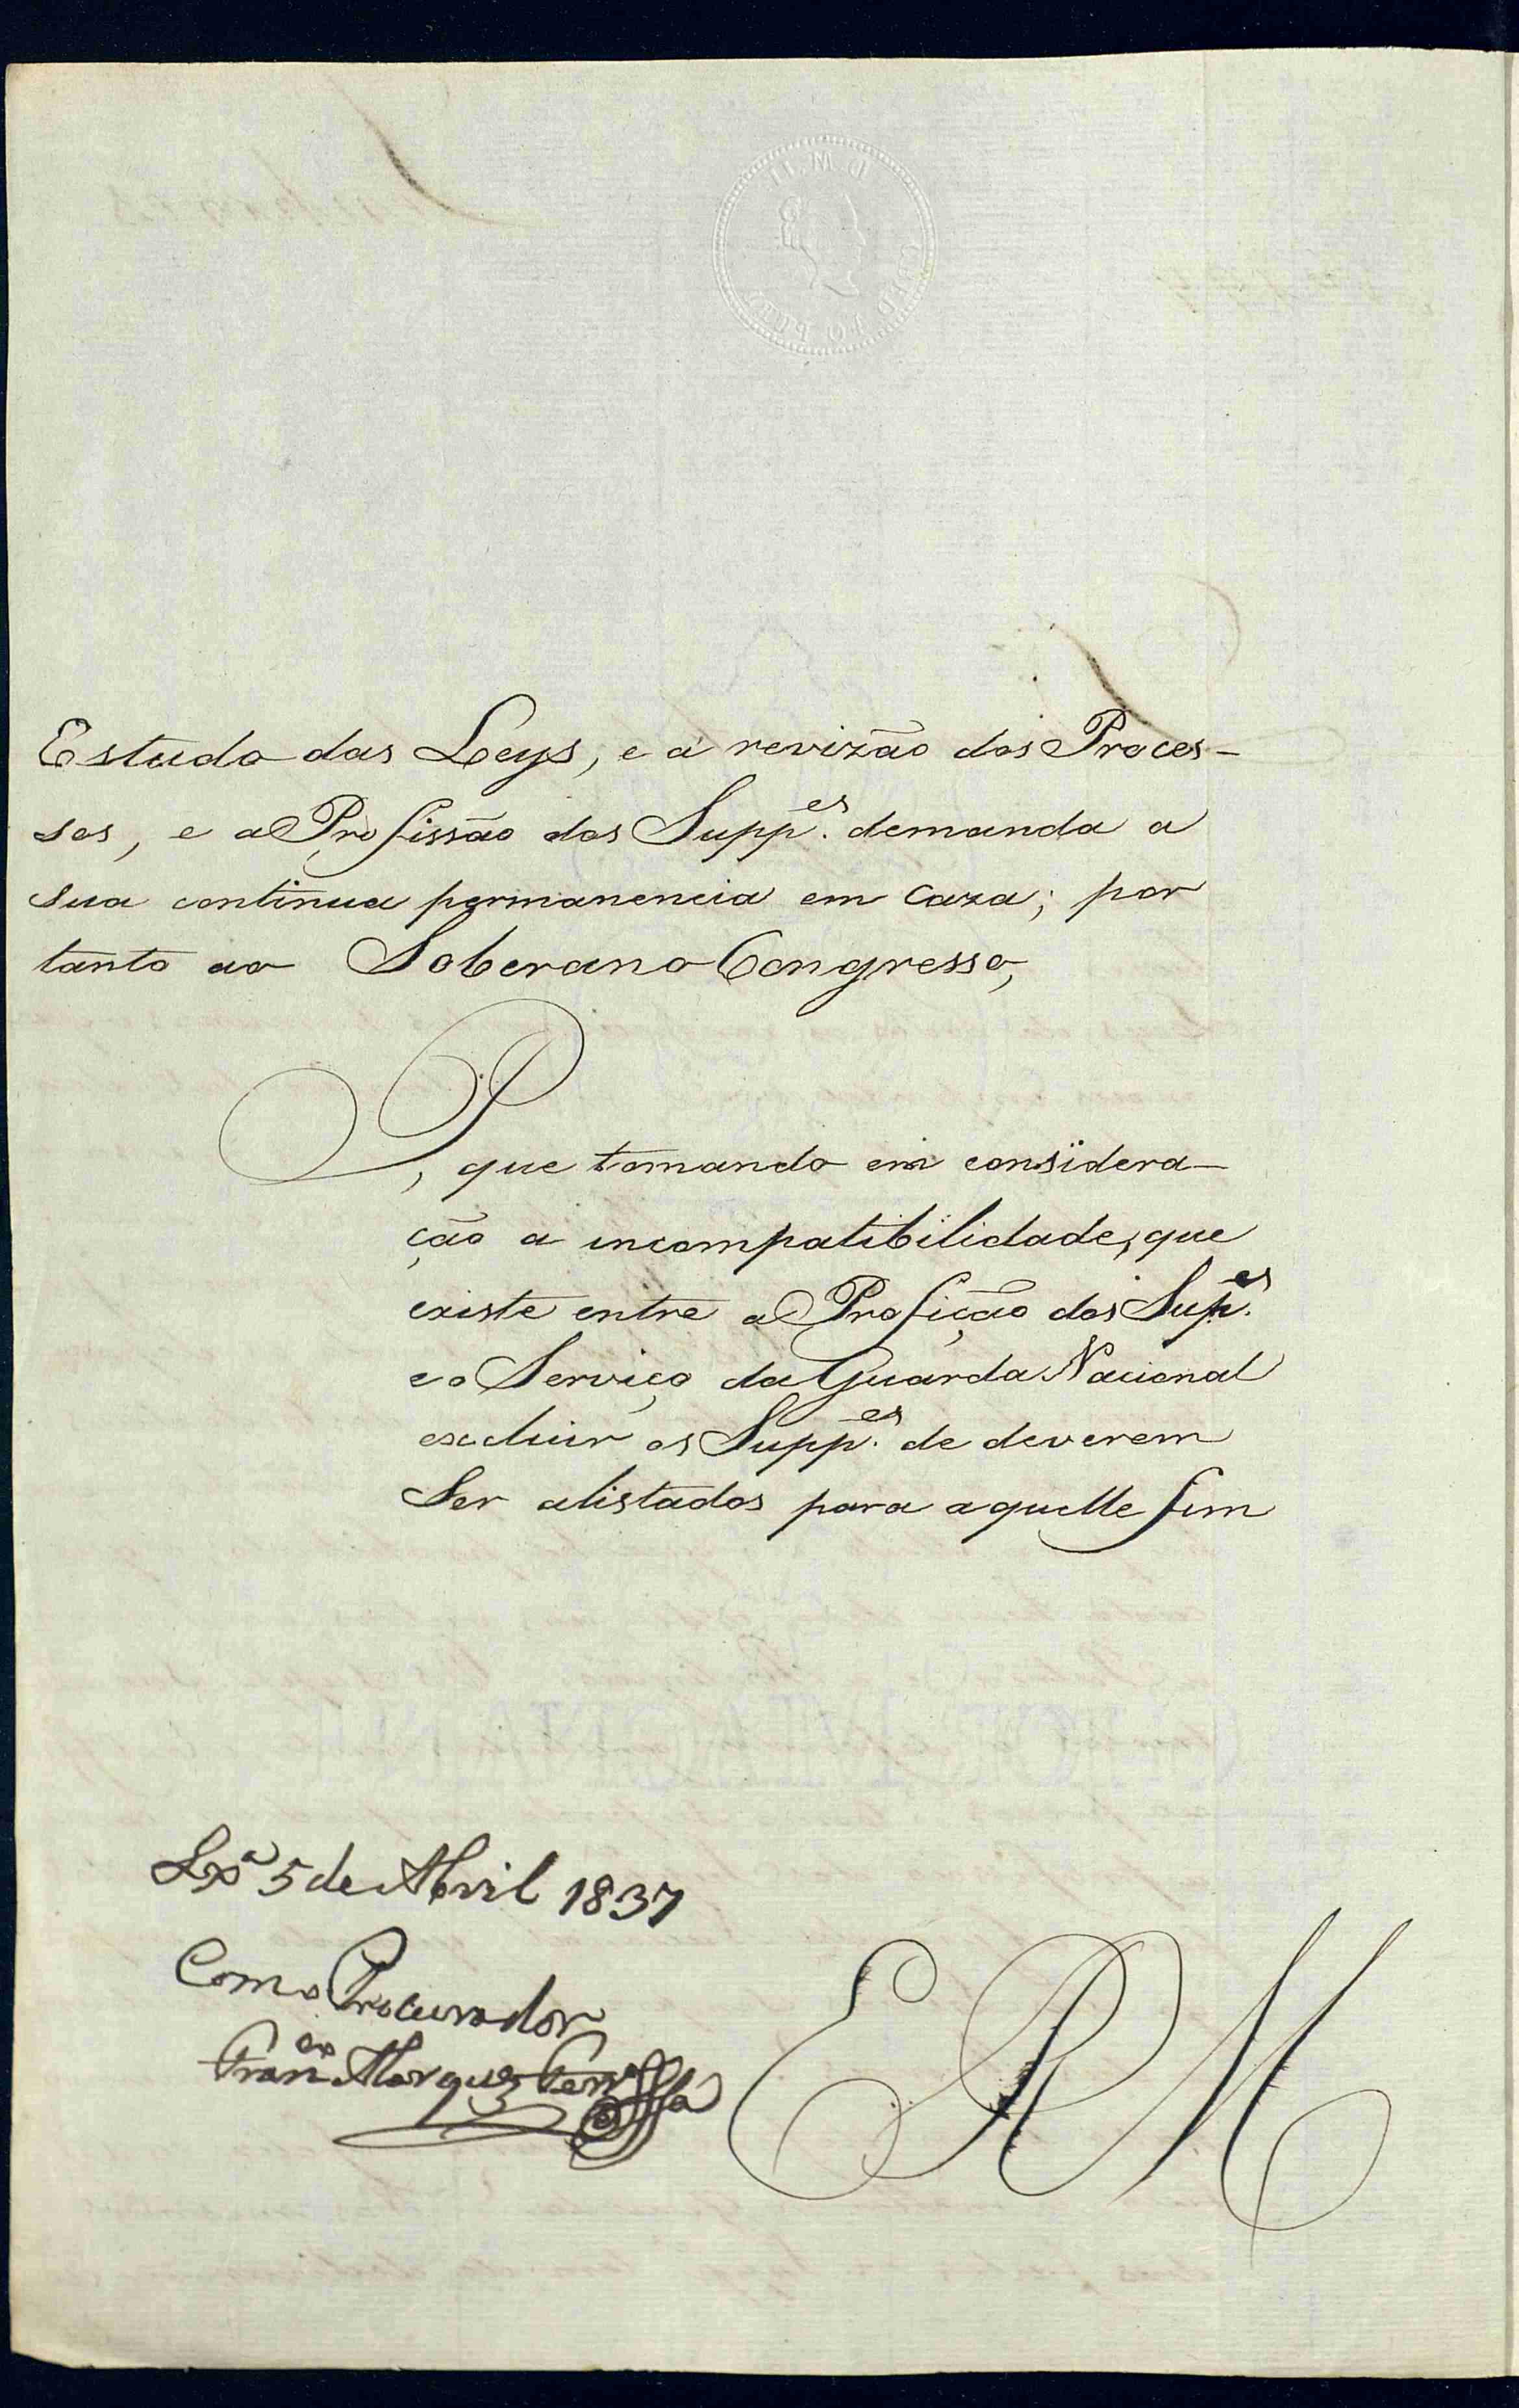 Estudo das Leys, e a revizão dos Proces-
sos, e a Profissão dos Supp.es demanda a
sua continua permanencia em caza; por
tanto ao Soberano Congresso,
P, que tomando em considera-
ção a incompatibilidade, que
existe entre a Profição dos Sup.es
e o Serviço da Guarda Nacional
excluir os Supp.es de deverem
ser alistados para aquelle fim
Lxa 5 de Abril 1837
Como Procurador
Franco Marques
E R M